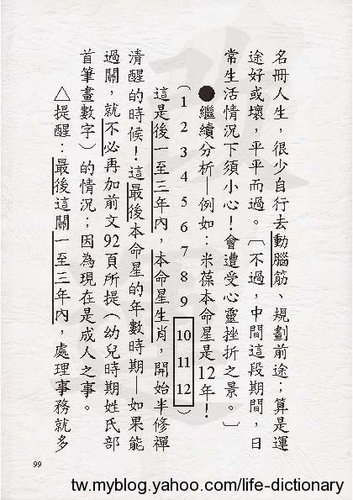 名冊人生，很少自行去動腦筋、規劃前途；算是運
途好或壞，平平而過。〔不過，中間這段期間，日
常生活情況下須小心！會遭受心靈挫折之景。〕
●繼續分析—例如：米葆本命星是12年！
（1 2 3 4 5 6 7 8 9 10 11 12）
這是後一至三年內，本命星生肖，開始半修禪
清醒的時候！這最後本命星的年數時期—如果能
過關，就不必再加前文92頁所提（幼兒時期姓氏部
首筆畫數字）的情況；因為現在是成人之事。
△提醒：最後這關一至三年內，處理事務就多
99
tw.myblog.yahoo.com/life-dictionary